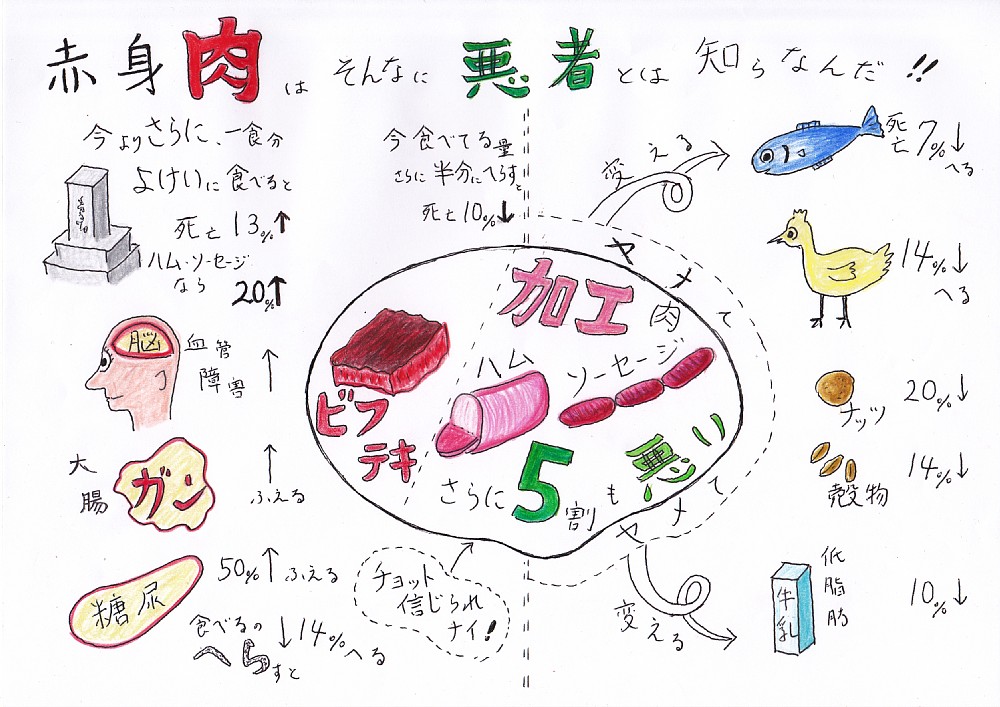 赤身肉はそんなに悪者とは知らなんだ!!
今よりさらに、一食分
よけいに食べると
死亡13%↑
ハム・ソーセージ
なら
20%↑
脳
血管
障害
↑
大
腸
ガン
↑
ふえる
糖尿
50%↑ふえる
食べるの
へらすと
↓14%
へる
今食べてる量
さらに半分にへらすと
死亡10%↓
加工
肉
ハム
ソーセージ
ビフ
テキ
さらに5割も悪い
チョット
信じられ
ナイ!
ヤメて
変える
ヤメて
変える
死亡7%↓
へる
14%↓
へる
ナッツ
20%↓
穀物
14%↓
牛乳
低脂肪
10%↓